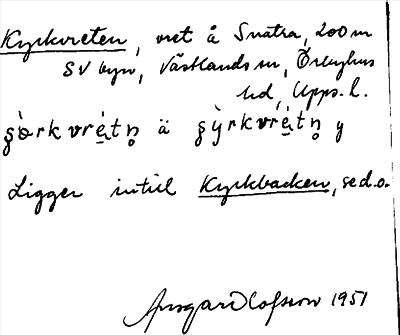 Kyrkvreten, vret å Snatra, 200 m
SV byn, Västlands sn, Örbyhus
hd, Upps. l.
ä
Ligger intill Kyrkbacken, se d.o.
Ansgar Olofsson 1951